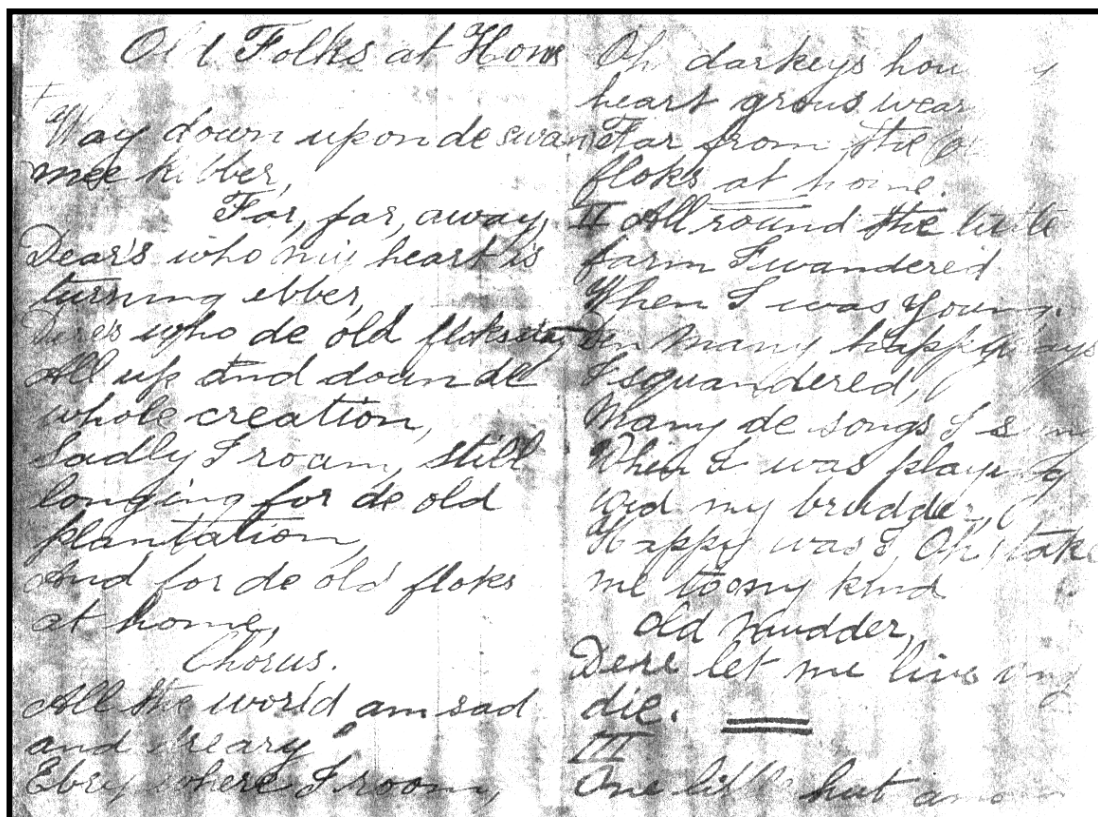 Old Folks at Home
Way down upon de swan
nee ribber,
Far, far, away,
Dear's who my heart is
turning ebber,
who de old floks
All up and down de
whole creation,
Sadly I roam, still
longing for de old
plantation,
And for de old floks
at home,
Chorus.
All the world am sad
and dreary
Ebry where I roam,
Oh darkeys how
heart grows wear
Far from the
floks at home.
II All round the little
farm I wandered
When I was young.
Den many happy days
I squandered,
Many de songs I sung
When I was playing
wid my brudder,
Happy was I, Oh, take
me to my kind
old mudder,
Dere let me live and
die.
III
One little hut among